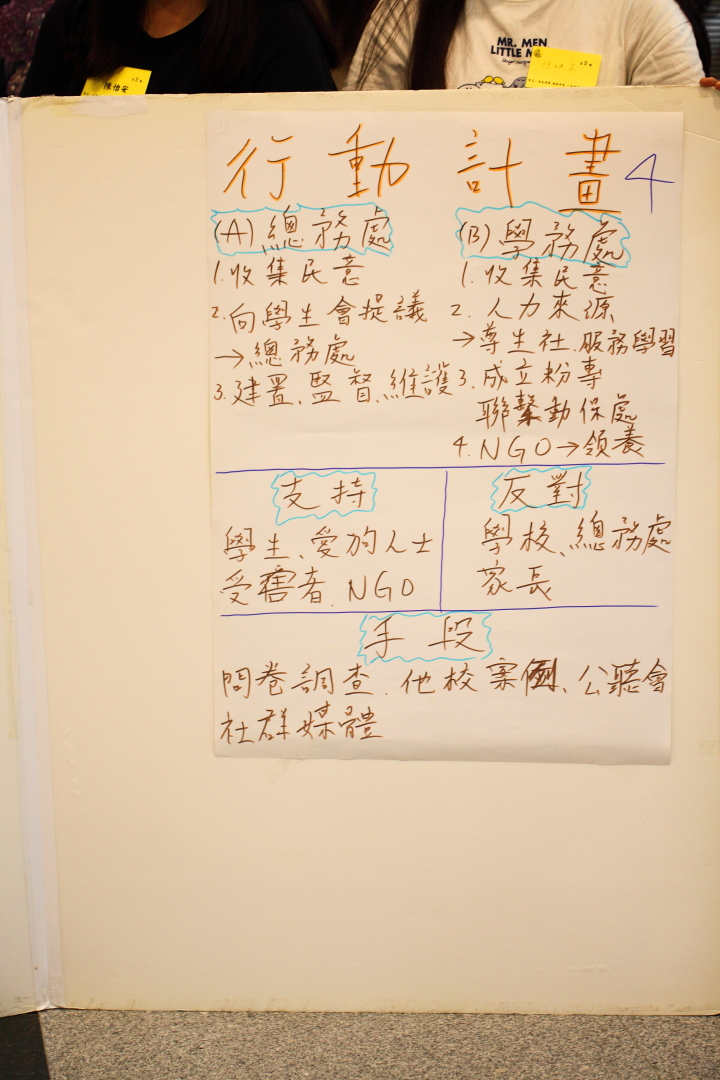 MR. MEN
LITTLE M
陳怡安
行動計畫 4
(A) 總務處
1. 收集民意
2. 向學生會提議
→總務處
3. 建置、監督、維護
(B) 學務處
1. 收集民意
2. 人力來源
→尊生社、服務學習
3. 成立粉專
聯繫動保處
4. NGO→領養
支持
學生、愛狗人士
受害者、NGO
反對
學校、總務處
家長
手段
問卷調查、他校案例、公聽會
社群媒體